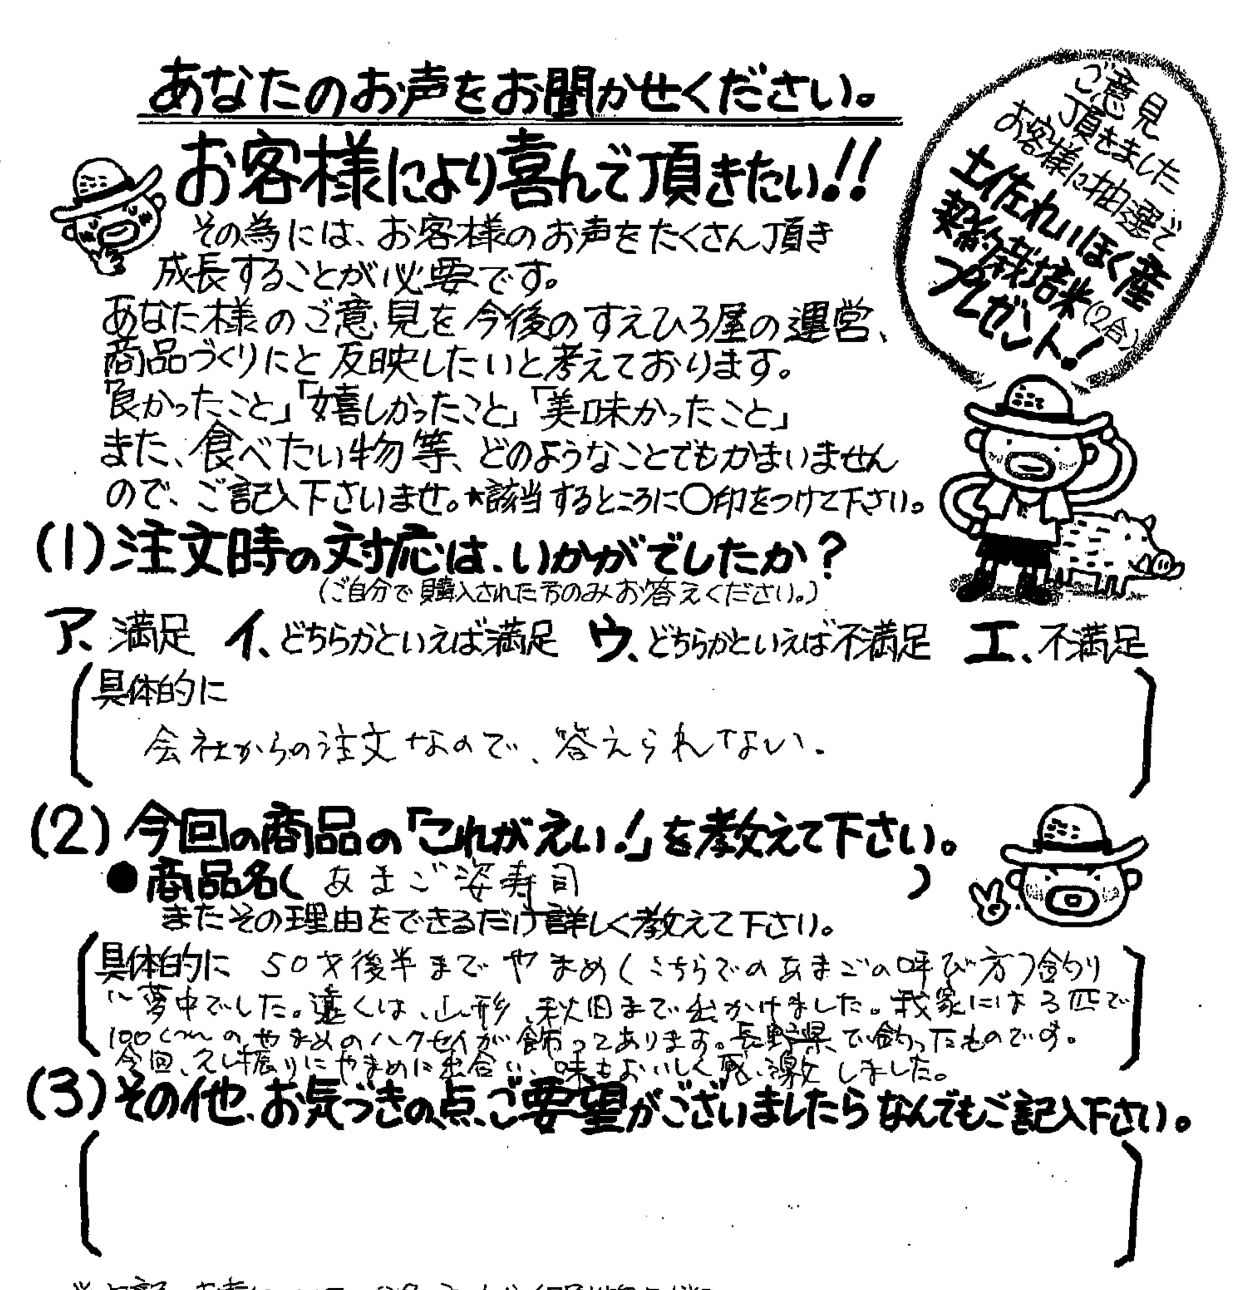 あなたのお声をお聞かせください。
お客様により喜んで頂きたい!!
その為には、お客様のお声をたくさん頂き
成長することが必要です。
あなた様のご意見を今後のすえひろ屋の運営、
商品づくりにと反映したいと考えております。
「良かったこと」「嬉しかったこと」「美味かったこと」
また、食べたい物等、どのようなことでもかまいません
ので、ご記入下さいませ。★該当するところに○印をつけて下さい。
ご意見
頂きました
お客様に抽選で
土佐れいほく産
契約栽培米(2合)
プレゼント!
(1)注文時の対応は、いかがでしたか?
(ご自分で購入された方のみお答えください。)
ア、満足 イ、どちらかといえば満足 ウ、どちらかといえば不満足 エ、不満足
具体的に
会社からの注文なので、答えられない.
(2)今回の商品の「これがえい!」を教えて下さい。
●商品名( あまご姿寿司 )
またその理由をできるだけ詳しく教えて下さい。
具体的に 50才後半までやまめ(こちらでのあまごの呼び方)釣り
に夢中でした。遠くは、山形、秋田まで出かけました。我家には3匹で
100cmのやまめのハクセイが飾ってあります。長野県で釣ったものです。
今回、久し振りにやまめに出合い、味もおいしく感激しました。
(3)その他、お気づきの点、ご要望がございましたらなんでもご記入下さい。